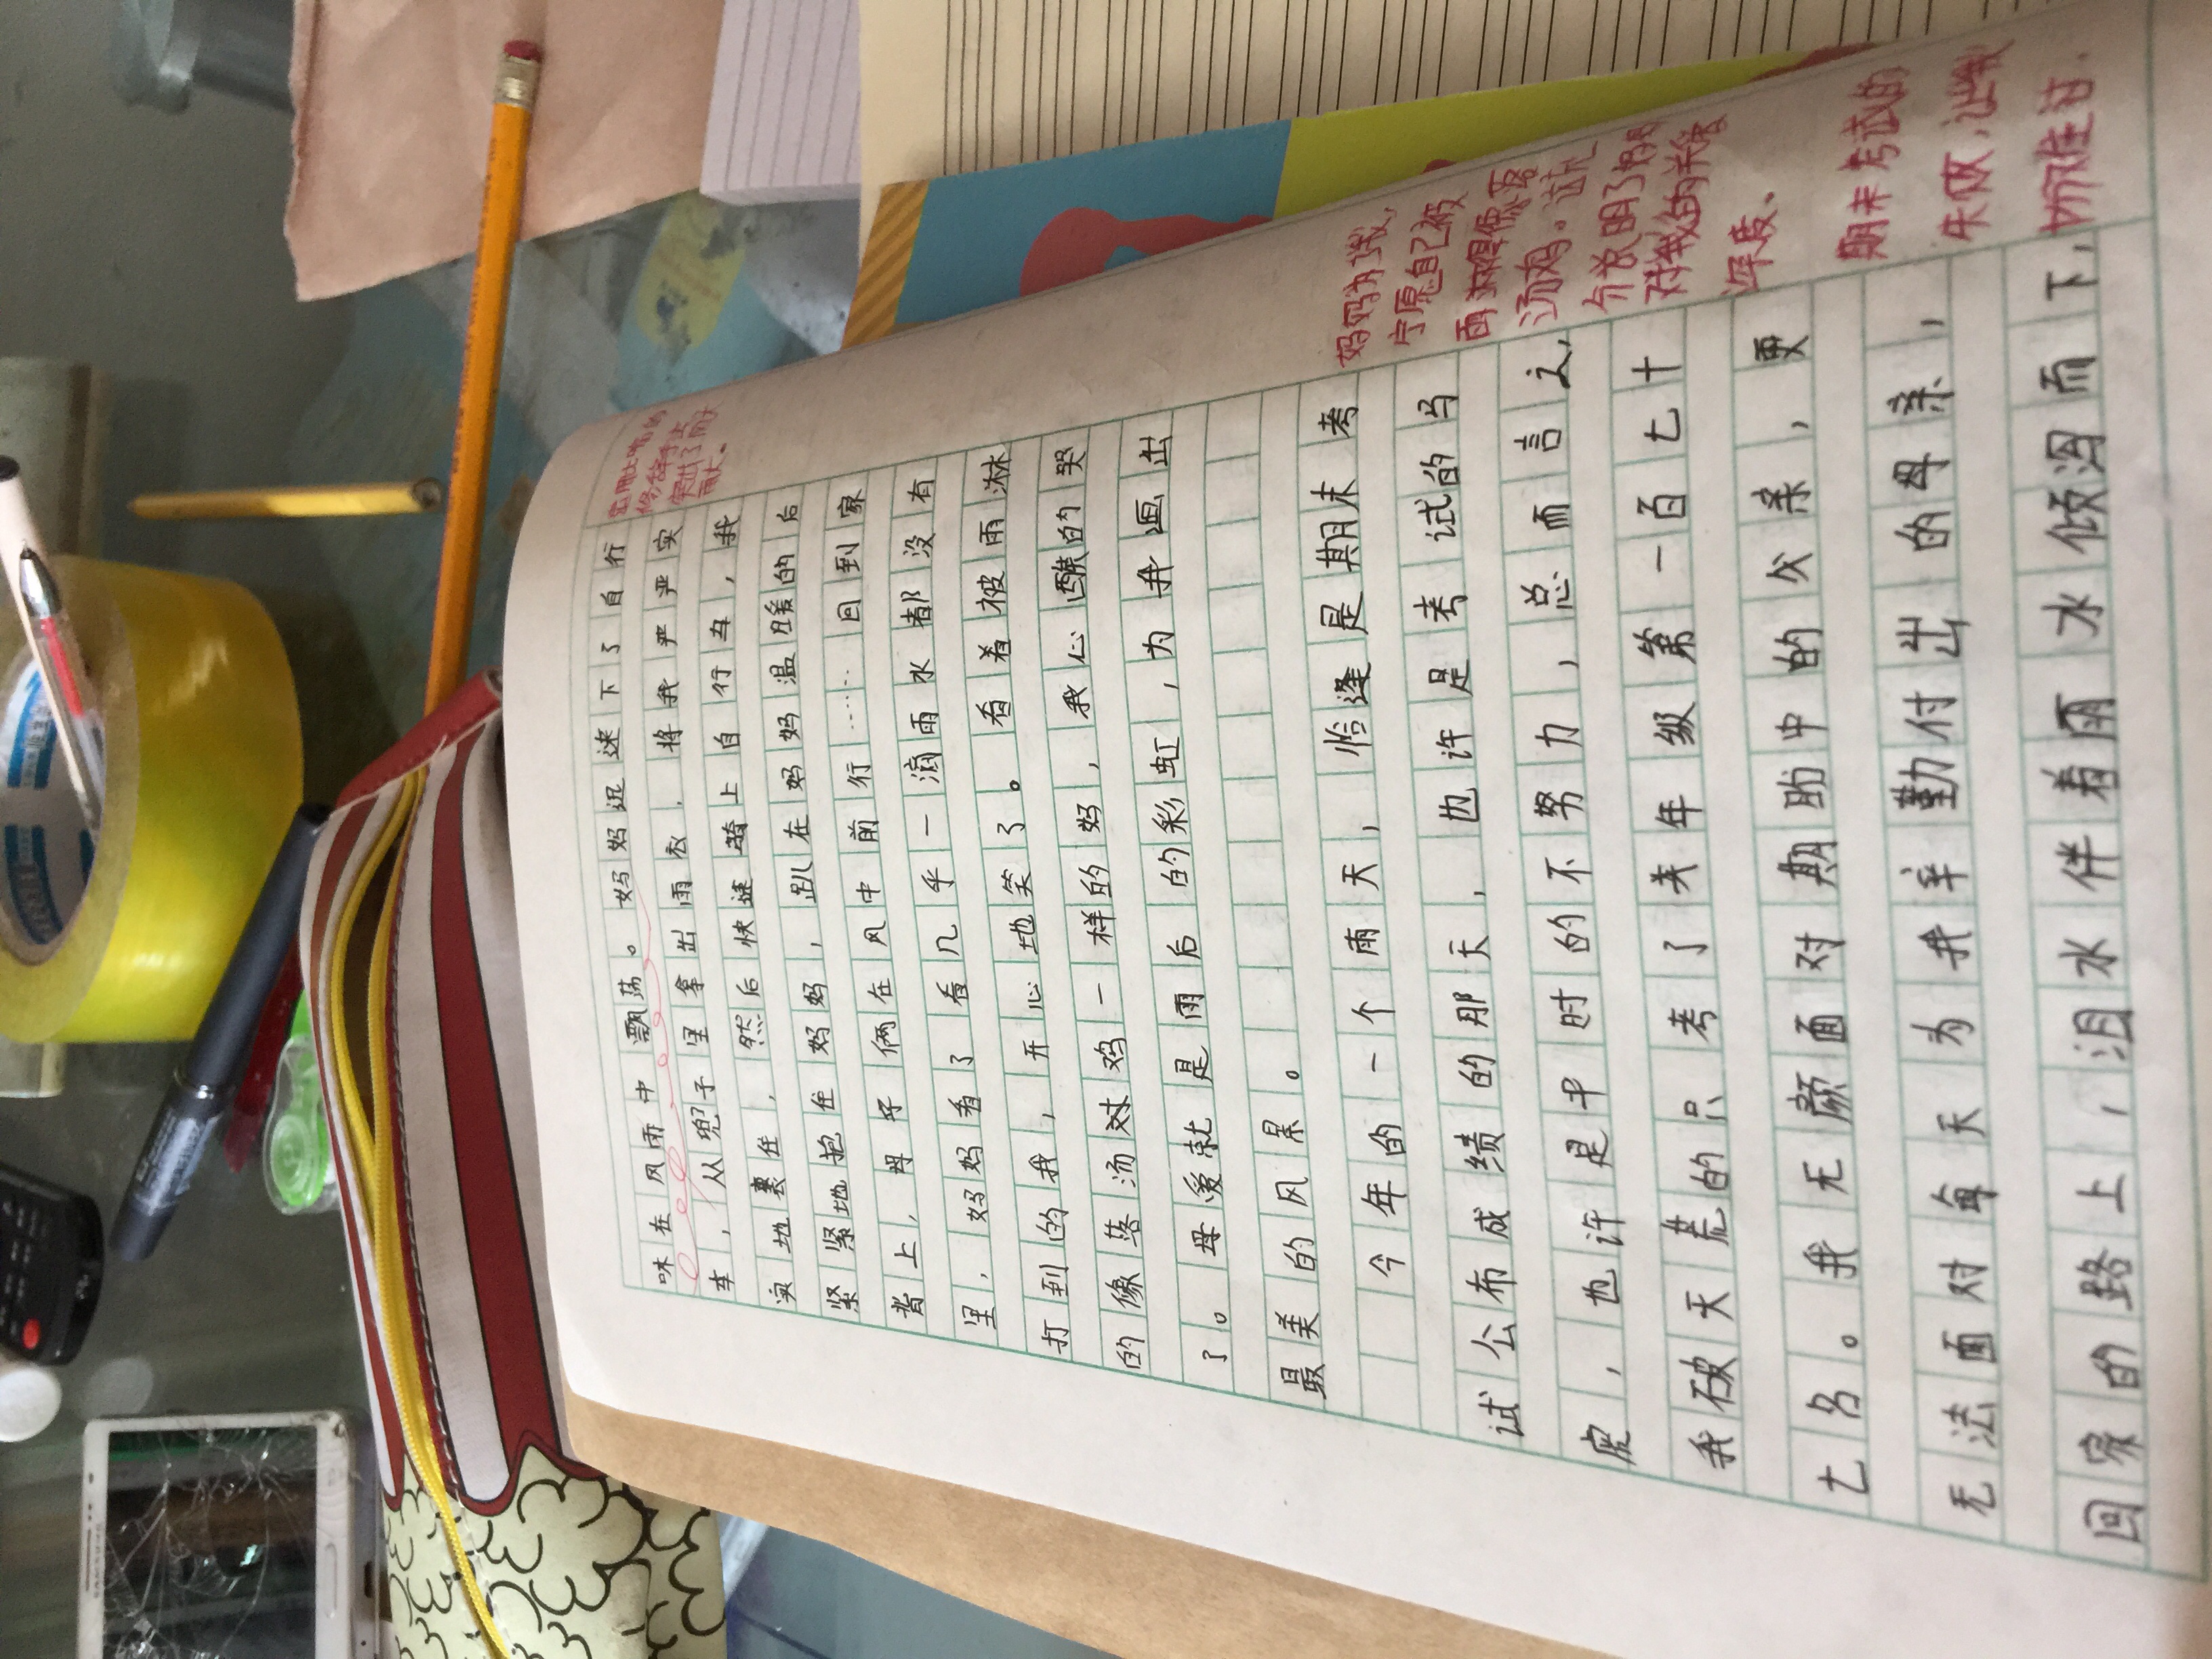 味在风雨中飘荡。妈妈迅速下了自行
车，从兜子里拿出雨衣，将我严严实
实地裹住，然后快速骑上自行车，我
紧紧地抱住妈妈，趴在妈妈温暖的后
背上，母子俩在风中前行……回到家
里，妈妈看了看几乎一滴雨水都没有
打到的我，开心地笑了。看着被雨淋
的像落汤鸡一样的妈，我心酸的哭
了。母爱就是雨后的彩虹，为我画出
最美的风景。
今年的一个雨天，恰逢是期末考
试公布成绩的那天，也许是考试的马
虎，也许是平时的不努力，总而言之，
我破天荒的只考了关年级第一百七十
七名。我无颜面对期盼中的父亲，更
无法面对每天为我辛勤付出的母亲，
回家的路上，泪水伴着雨水倾泻而下，
妈妈为了我，
宁愿自己被
雨淋得像落
汤鸡。这充
分表明了妈妈
对我的关爱
深度。
期末考试的
失败，让我